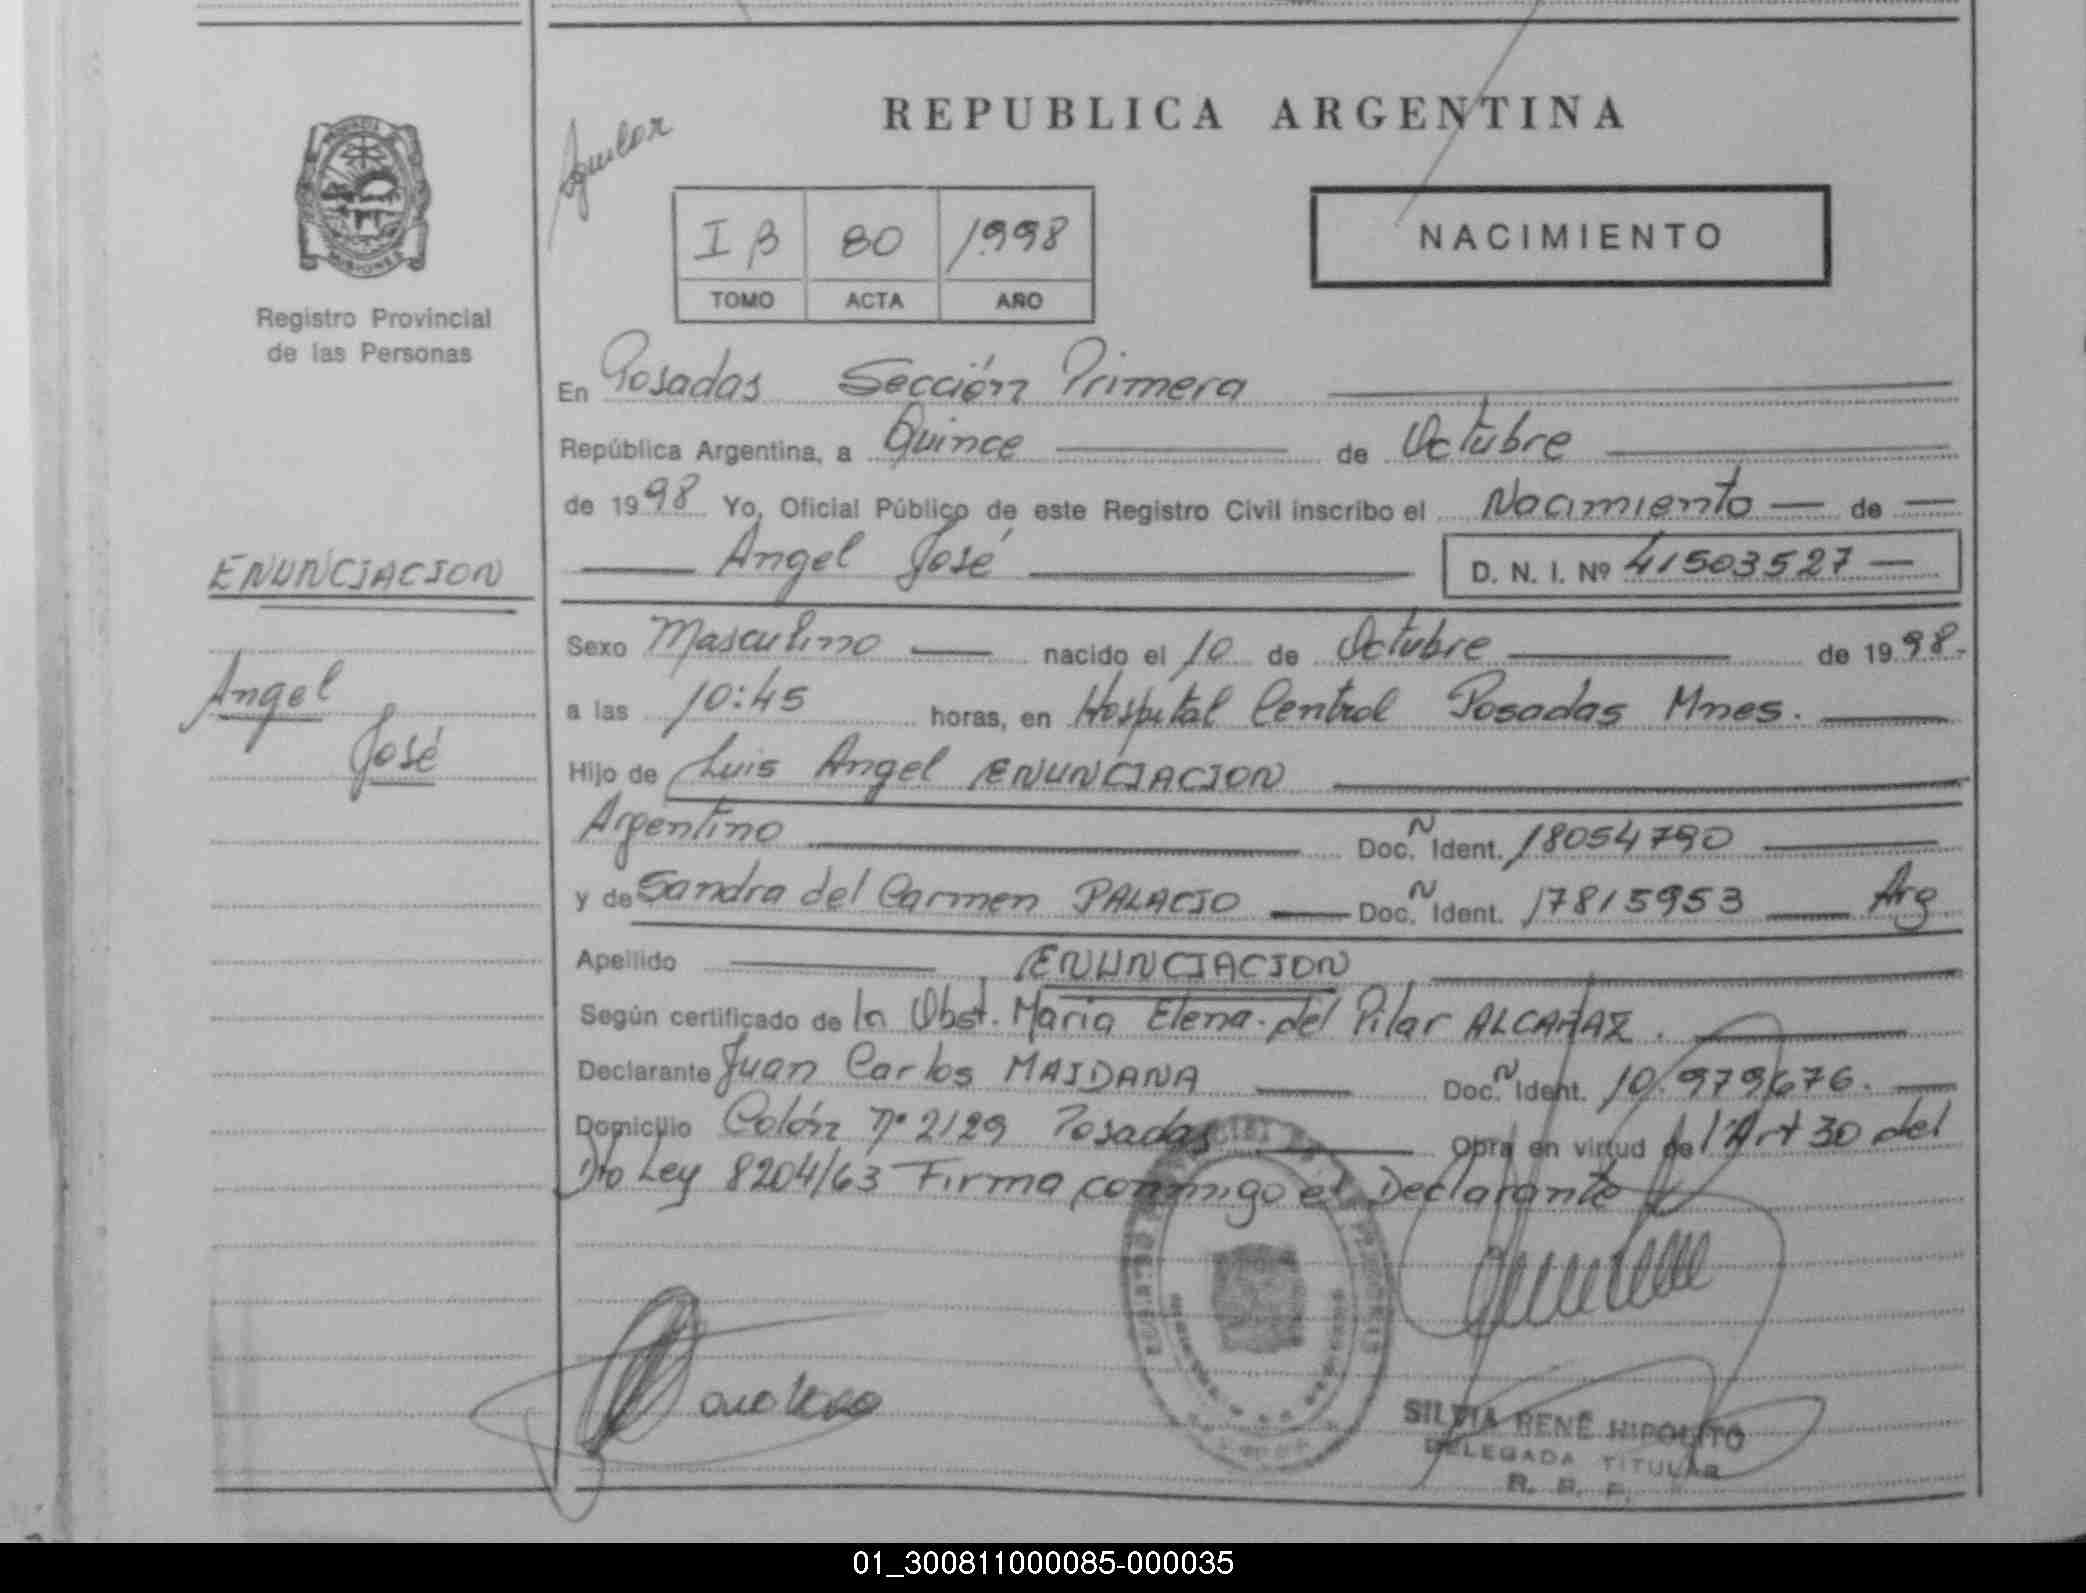 REPUBLICA ARGENTINA
Aguilar
MISIONES
Registro Provincial
de las Personas
I B 80 1998
TOMO ACTA AÑO
NACIMIENTO
En Posadas Sección Primera
República Argentina, a Quince de Octubre
de 1998 Yo, Oficial Público de este Registro Civil inscribo el Nacimiento de
Angel José D. N. I. Nº 41503527
ENUNCIACION
Angel
José
Sexo Masculino nacido el 10 de Octubre de 1998.
a las 10:45 horas, en Hospital Central Posadas Mnes.
Hijo de Luis Angel ENUNCIACION
Argentino Doc. N Ident. 18054790
y de Sandra del Carmen PALACIO Doc. N Ident. 17815953 Arg
Apellido ENUNCIACION
Según certificado de la Obst. Maria Elena del Pilar ALCARAZ.
Declarante Juan Carlos MAIDANA Doc. N Ident. 10.979,676.
Domicilio Colón nº 2129 Posadas Obra en virtud del Art 30 del
Dto Ley 8204/63 Firma conmigo el Declarante
SILVIA RENE HIPOLITO
DELEGADA TITULAR
R. P. P.
01_300811000085-000035